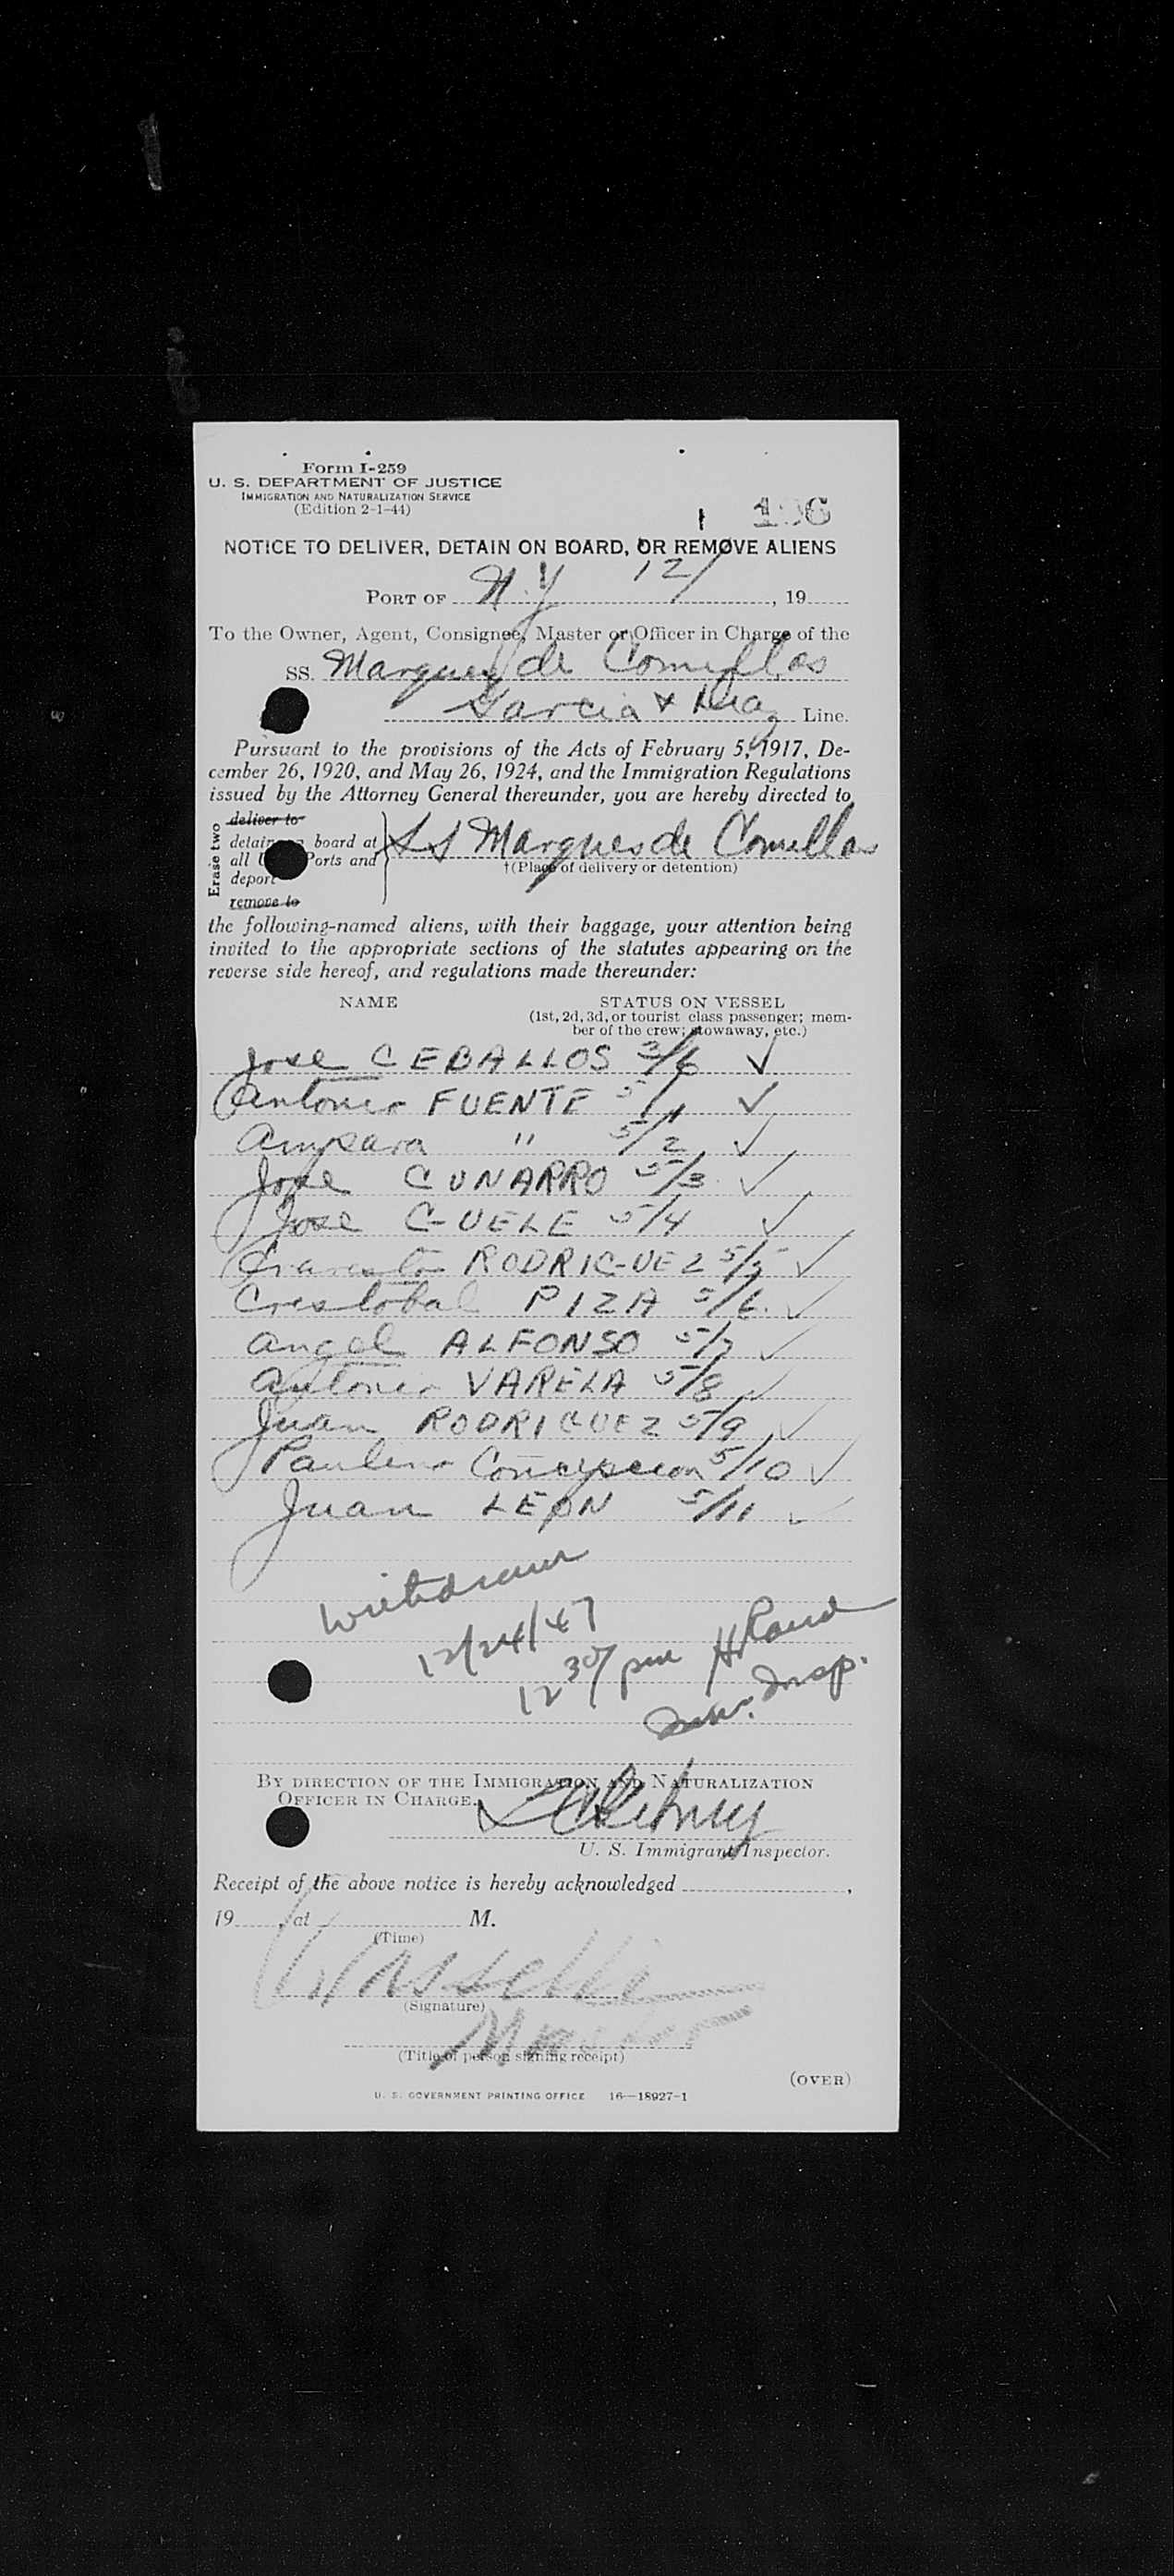 Form I-259
U. S. DEPARTMENT OF JUSTICE
IMMIGRATION AND NATURALIZATION SERVICE
(Edition 2-1-44)
NOTICE TO DELIVER, DETAIN ON BOARD, OR REMOVE ALIENS
PORT OF N.Y 12/ , 19
To the Owner, Agent, Consignee, Master or Officer in Charge of the
SS. Marques de Comillas
Garcia & Diaz Line.
Pursuant to the provisions of the Acts of February 5, 1917, De-
cember 26, 1920, and May 26, 1924, and the Immigration Regulations
issued by the Attorney General thereunder, you are hereby directed to
Erase two
deliver to
detain board at
all Ports and
deport
remove to
SS Marques de Comillas
†(Place of delivery or detention)
the following-named aliens, with their baggage, your attention being
invited to the appropriate sections of the statutes appearing on the
reverse side hereof, and regulations made thereunder:
NAME STATUS ON VESSEL
(1st, 2d, 3d, or tourist class passenger; mem-
ber of the crew; stowaway, etc.)
Jose CEBALLOS 3/6 ✓
Antonio FUENTE 5/1 ✓
Amparo " 5/2 ✓
Jose CUNARRO 5/3 ✓
Jose GUELE 5/4 ✓
RODRIGUEZ 5/5 ✓
Cristobal PIZA 5/6 ✓
Angel ALFONSO 5/7 ✓
Antonio VARELA 5/8 ✓
Juan RODRIGUEZ 5/9 ✓
Paulino Concepcion 5/10 ✓
Juan LEON 5/11 ✓
Withdrawn
12/24/47
12 30/ pm H Rand
Imm. Insp.
BY DIRECTION OF THE IMMIGRATION AND NATURALIZATION
OFFICER IN CHARGE.
U. S. Immigrant Inspector.
Receipt of the above notice is hereby acknowledged ,
19 , at M.
(Time)
(Signature)
Master
(Title of person signing receipt)
(OVER)
U. S. GOVERNMENT PRINTING OFFICE 16—18927-1